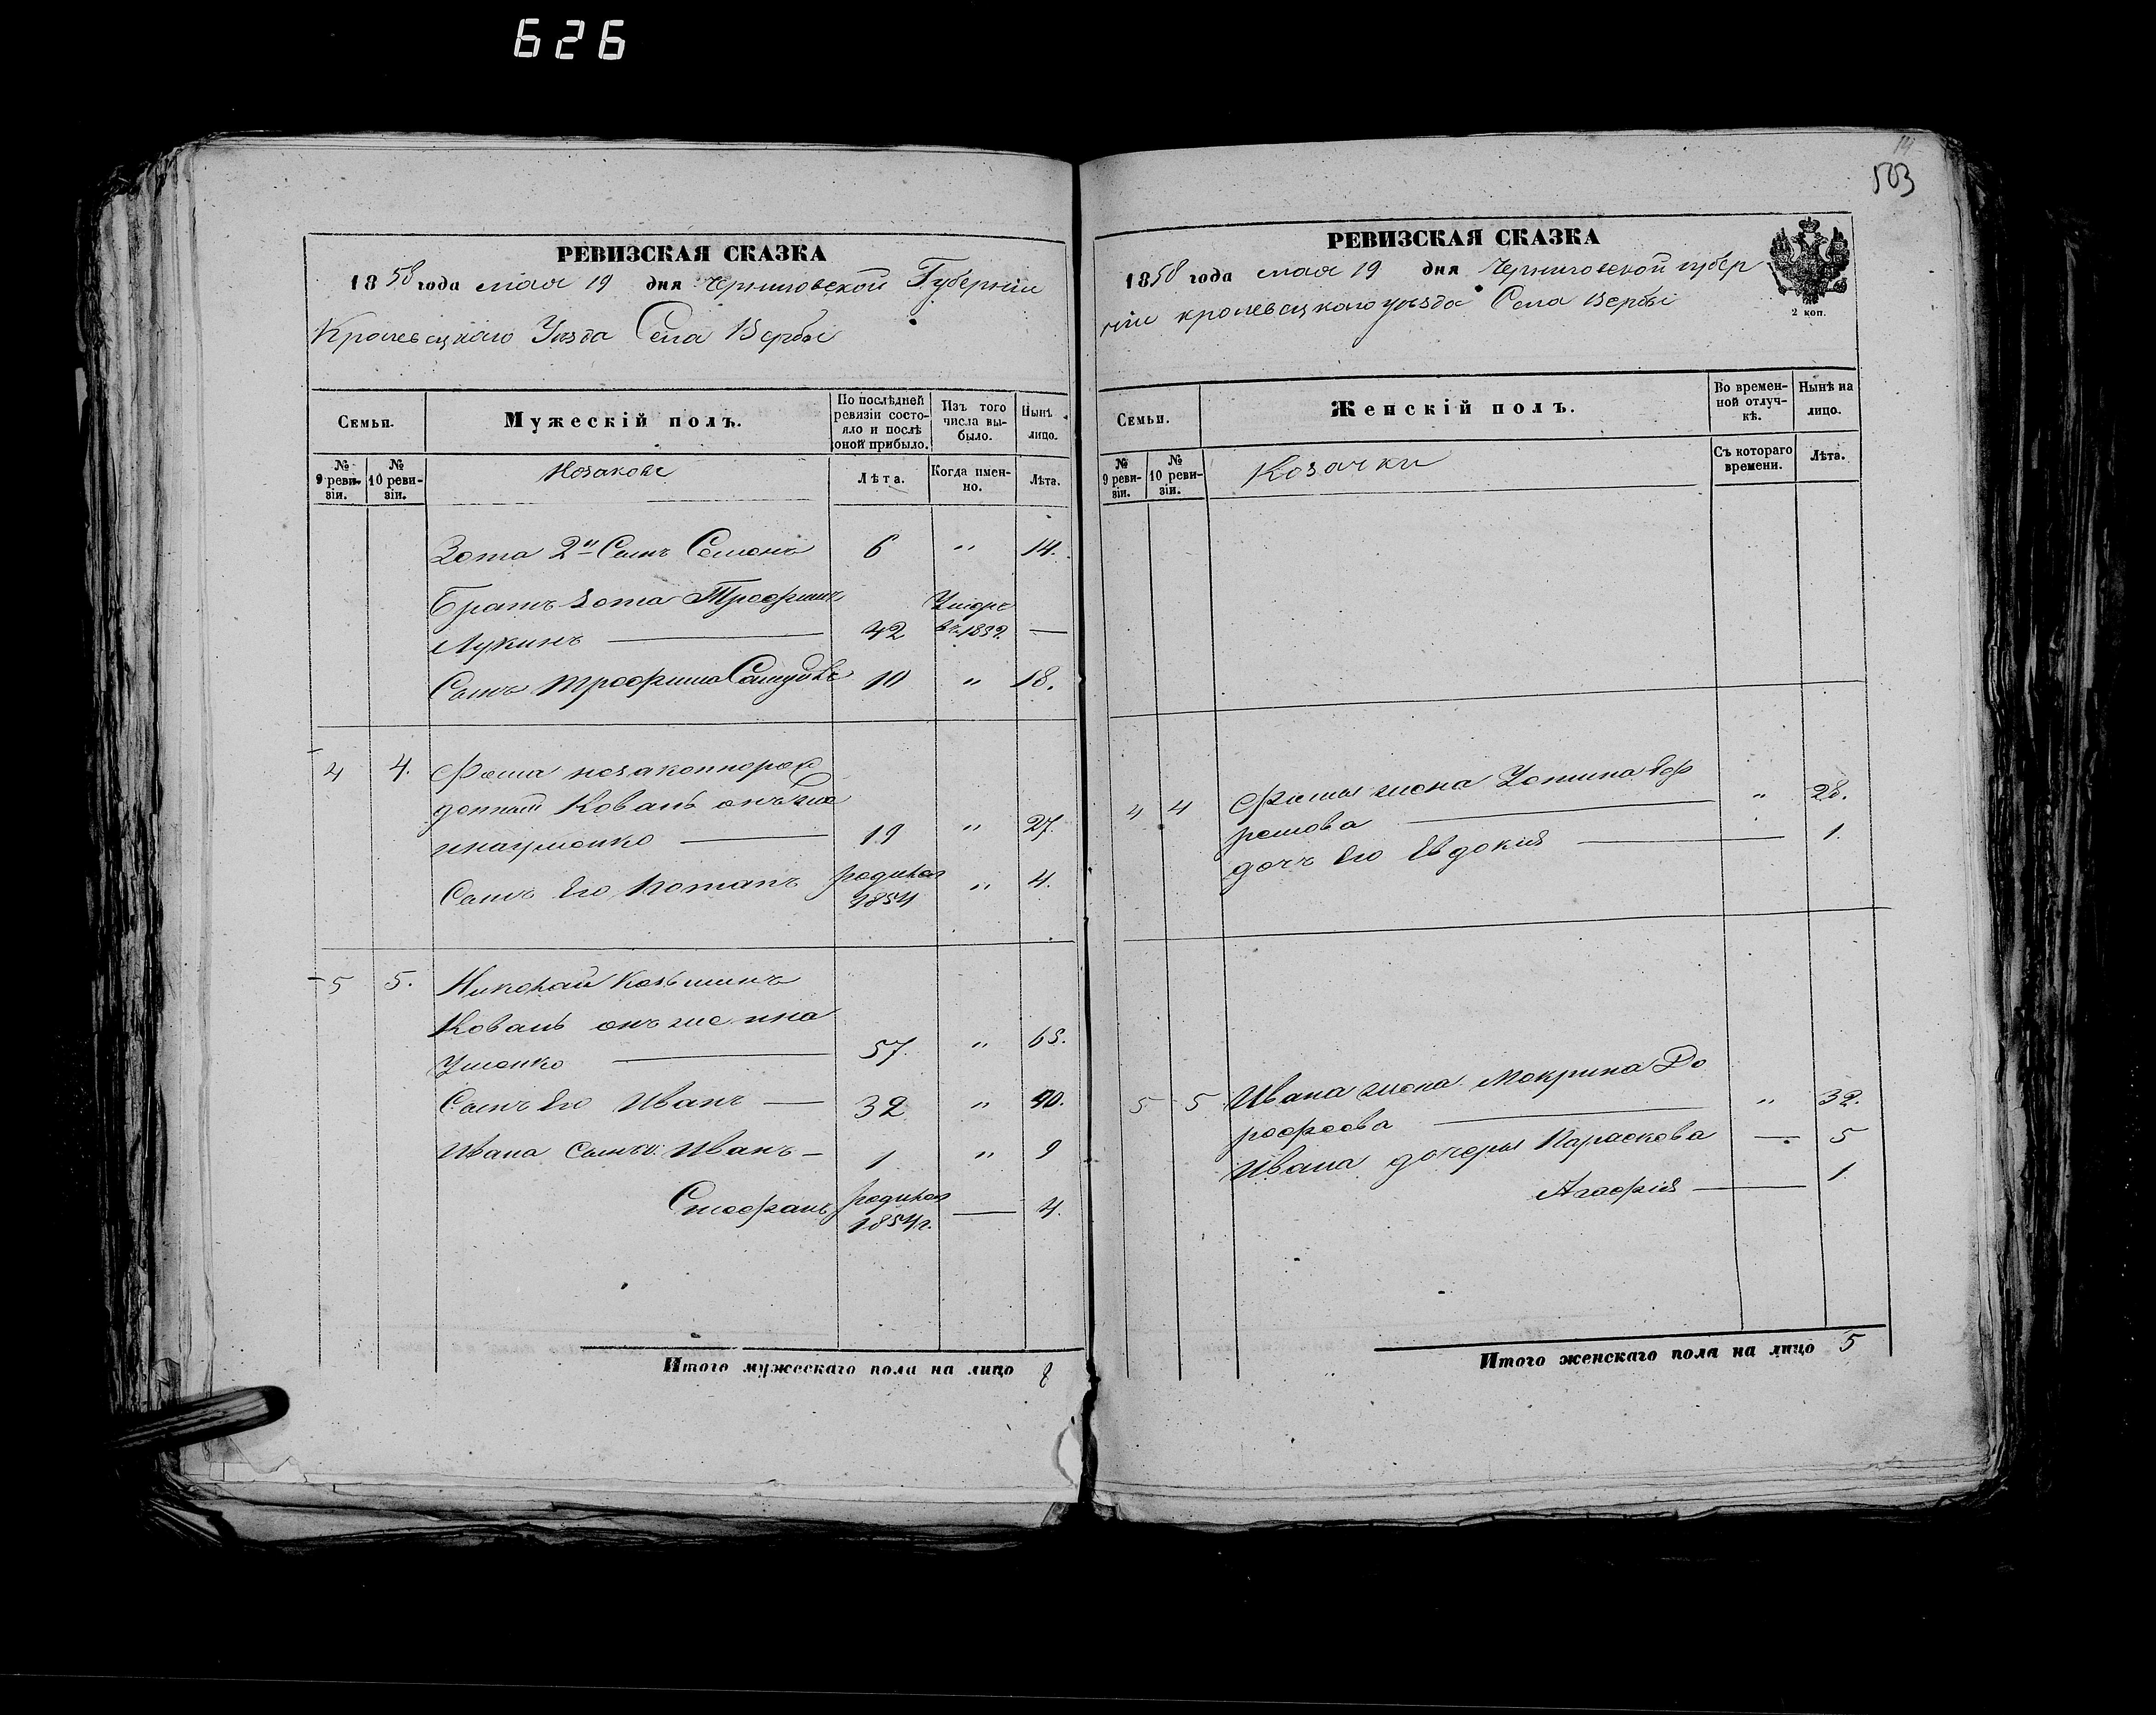 626
14
503
РЕВИЗСКАЯ СКАЗКА
1858 года мая 19 дня Черниговской Губернiи
Кролевецкого Уезда Села Вербы
Семьи.
Мужескій полъ.
По послѣдней ревизіи состояло и послѣ оной прибыло.
Изъ того числа выбыло.
Нынѣ лицо.
№ 9 ревизіи.
№ 10 ревизіи.
Козаковъ
Лѣта.
Когда именно.
Лѣта.
Зота 2й Сынъ Семенъ 6 " 14.
Братъ Зота Трофимъ Умеръ
Лукинъ 42 въ —
Сынъ Трофима 10 " 18.
4 4. Фома незаконнорож
денный Коваль онъ же
Наументко 19 " 27.
Сынъ Его Потапъ родился 1854 " 4.
5 5. Николай Козьминъ
Коваль онъ же Нна
уменко 57. " 65.
Сынъ Его Иванъ — 32 " 40.
Ивана Сынъ Иванъ — 1 " 9
Стефанъ родился 1854 г. — 4.
Итого мужескаго пола на лицо 8
РЕВИЗСКАЯ СКАЗКА
1858 года мая 19 дня Черниговской губер
ніи кролевецкого уезда Села Вербы
2 коп.
Семьи.
Женскій полъ.
Во временной отлучкѣ.
Нынѣ на лицо.
№ 9 ревизіи.
№ 10 ревизіи.
Козачки
Съ котораго времени.
Лѣта.
4 4 Фомы жена Устина Еф
ремова " 28.
дочь Его Евдокия — 1.
5 5 Ивана жена Мокрина До
рофеева " 32.
Ивана дочеры Параскова — 5
Агафия — 1.
Итого женскаго пола на лицо 5